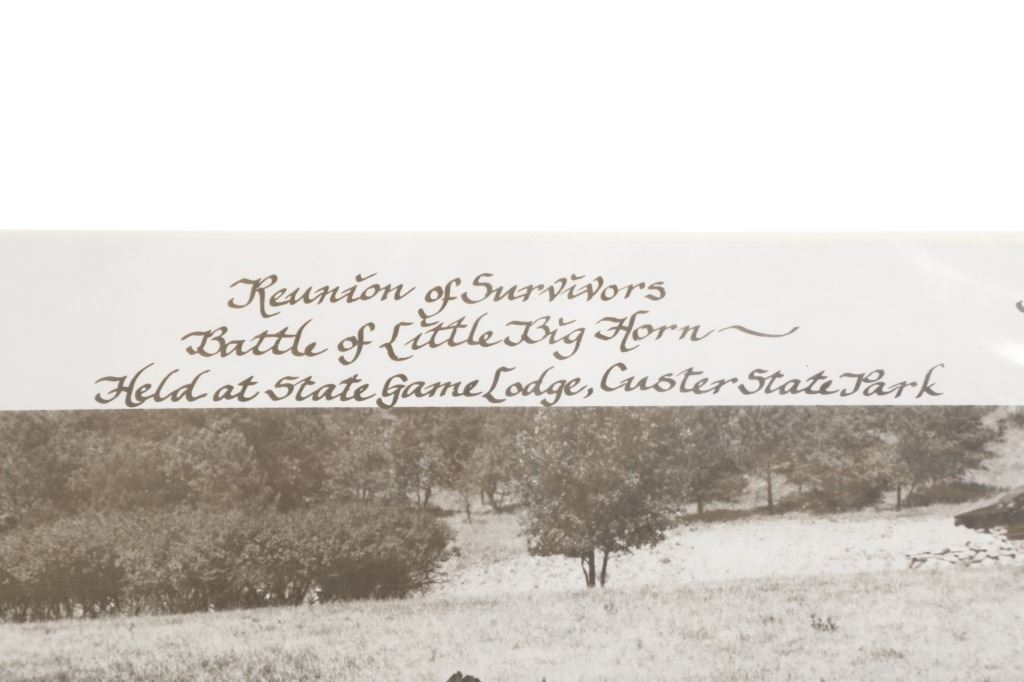 Reunion of Survivors
Battle of Little Big Horn ~
Held at State Game Lodge, Custer State Park